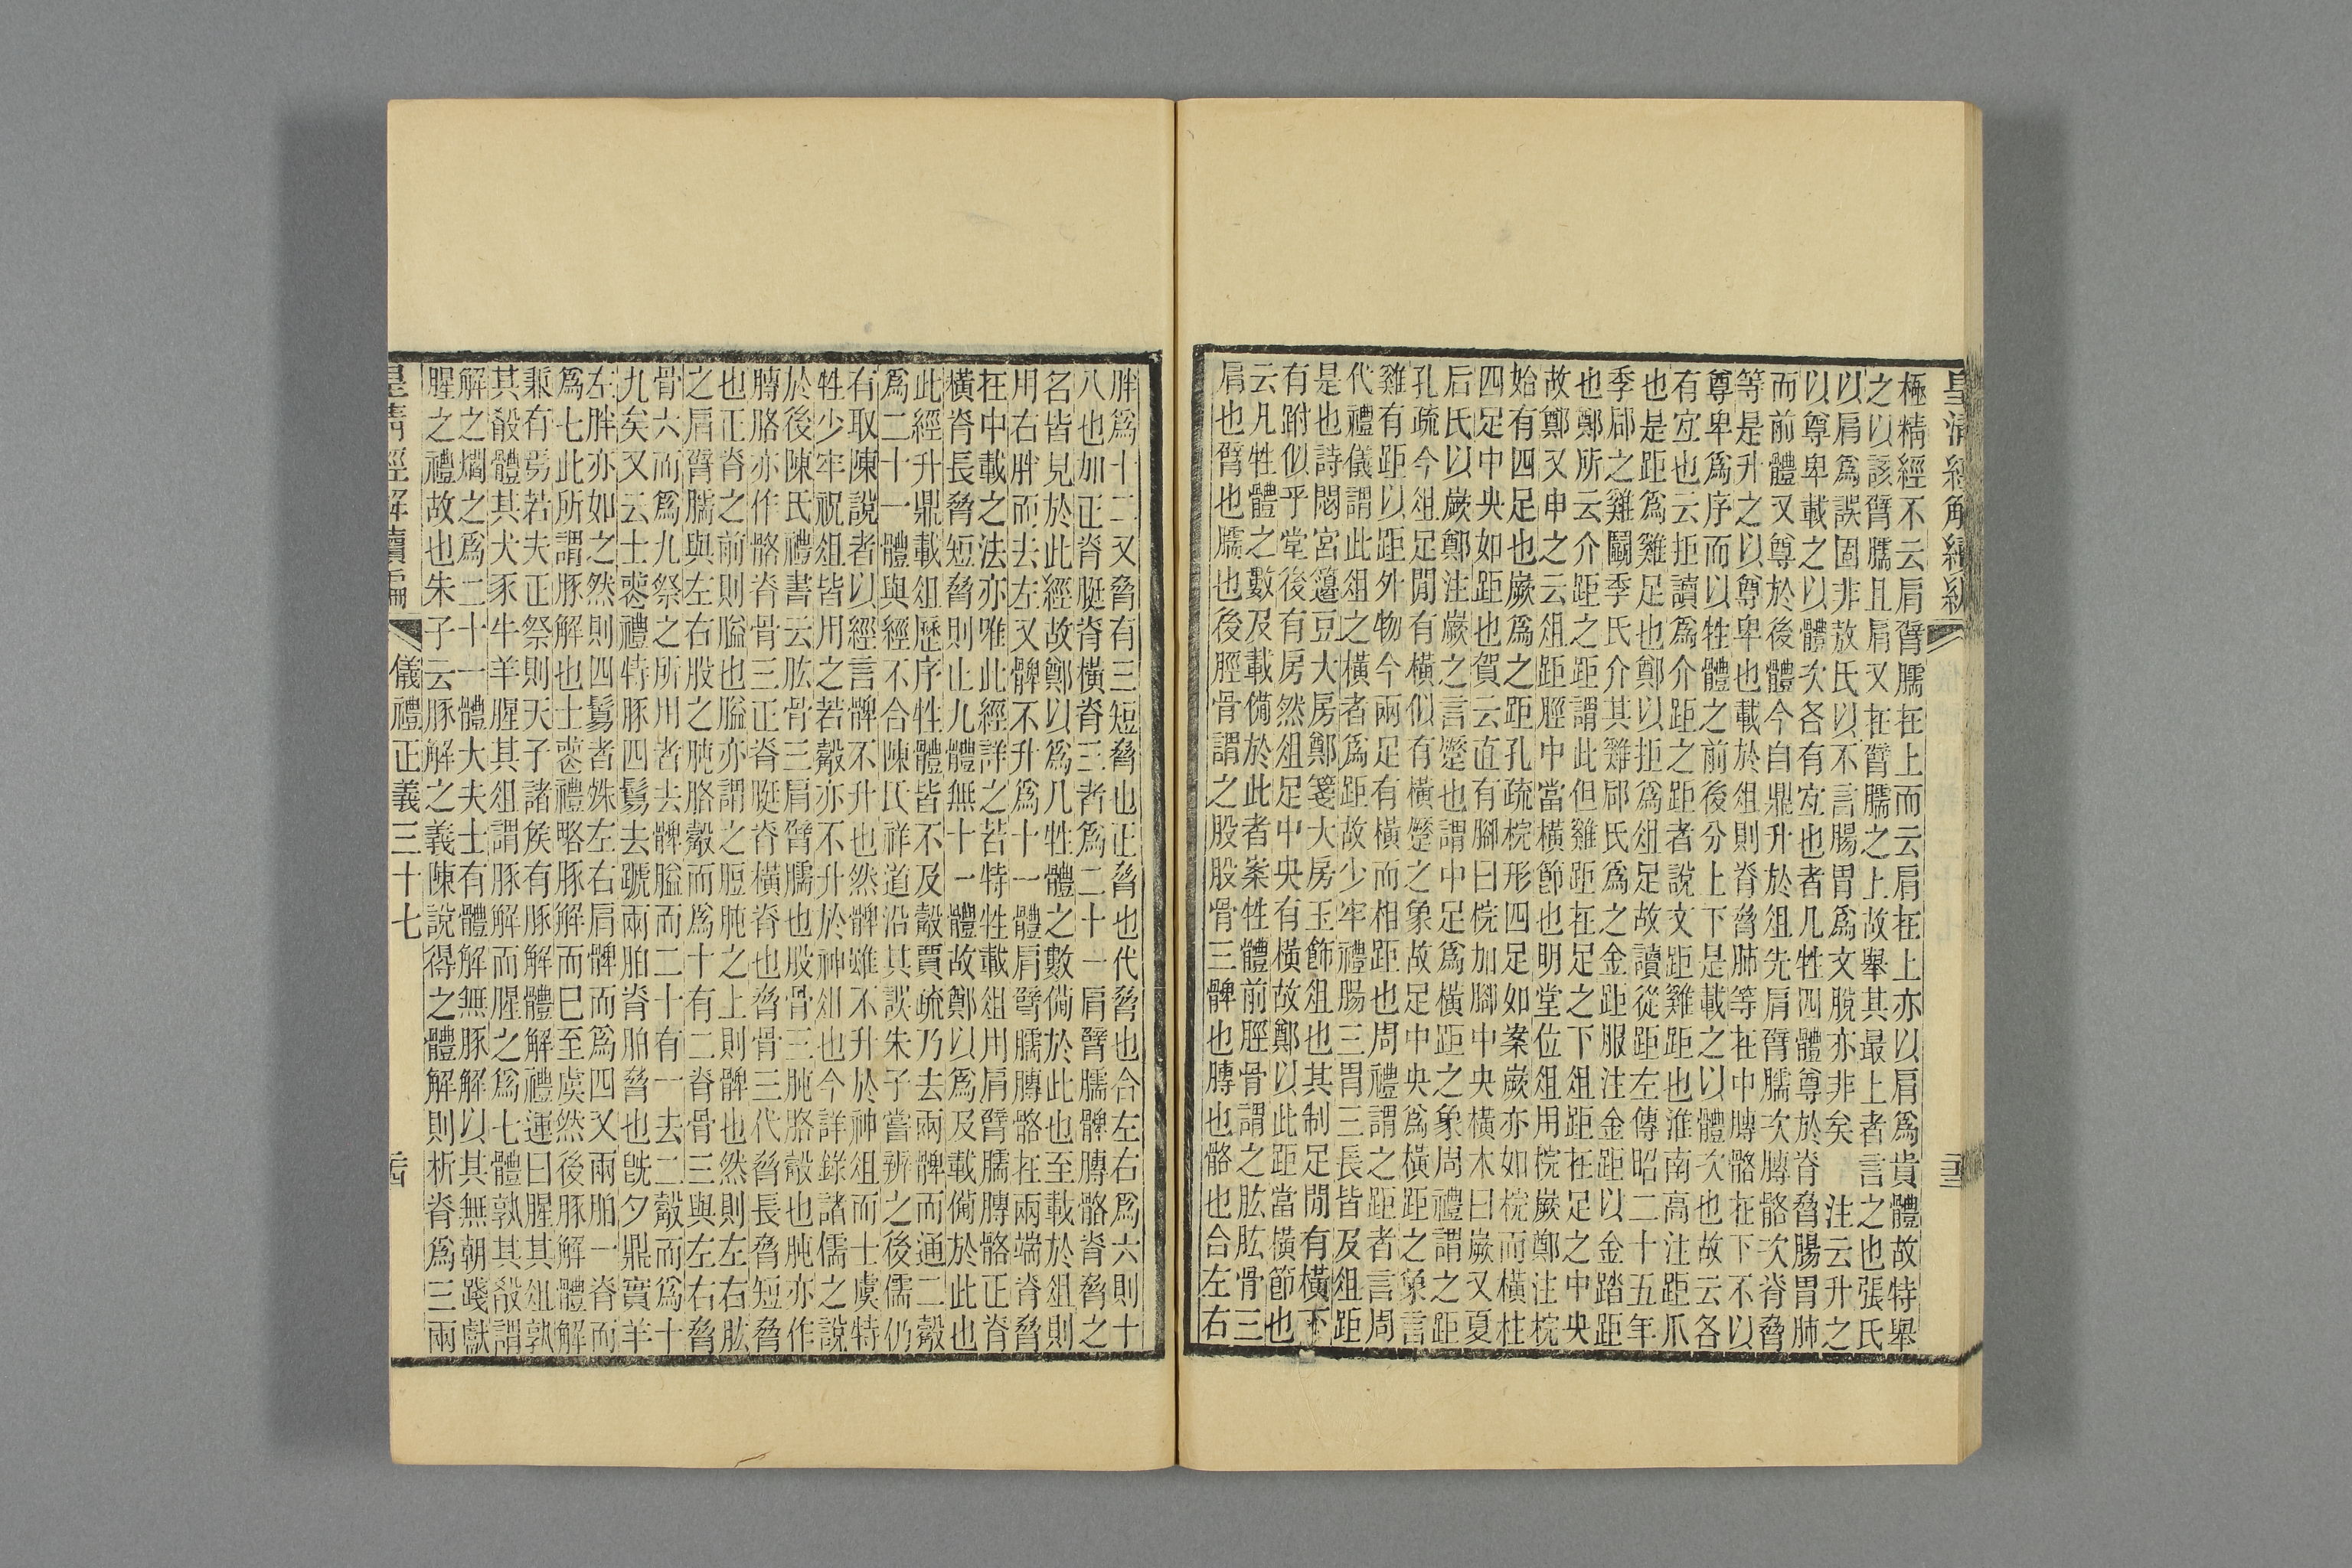 極精經不云肩臂臑在上而云肩在上亦以肩爲貴體故特舉
之以該臂臑且肩又在臂臑之上故舉其最上者言之也張氏
以肩爲誤固非敖氏以不言腸胃爲文脫亦非矣　注云升之
以尊卑載之以體次各有宜也者凡牲四體尊於脊脅腸胃肺
而前體又尊於後體今自鼎升於俎先肩臂臑次膞骼次脊脅
等是升之以尊卑也載於俎則脊脅肺等在中膞骼在下不以
尊卑爲序而以牲體之前後分上下是載之以體次也故云各
有宜也云拒讀爲介距之距者說文距雞距也淮南高注距爪
也是距爲雞足也鄭以拒爲俎足故讀從距左傳昭二十五年
季郈之雞鬭季氏介其雞郈氏爲之金距服注金距以金踏距
也鄭所云介距之距謂此但雞距在足之下俎距在足之中央
故鄭又申之云俎距脛中當橫節也明堂位俎用梡嶡鄭注梡
始有四足也嶡爲之距孔疏梡形四足如案嶡亦如梡而橫柱
四足中央如距也賀云直有腳曰梡加腳中央橫木曰嶡又夏
后氏以嶡鄭注嶡之言蹷也謂中足爲橫距之象周禮謂之距
孔疏今俎足閒有橫似有橫蹷之象故足中央爲橫距之象言
雞有距以距外物今兩足有橫而相距也周禮謂之距者言周
代禮儀謂此俎之橫者爲距故少牢禮腸三胃三長皆及俎距
是也詩閟宮籩豆大房鄭箋大房玉飾俎也其制足閒有橫下
有跗似乎堂後有房然俎足中央有橫故鄭以此距當橫節也
云凡牲體之數及載備於此者案牲體前脛骨謂之肱肱骨三
肩也臂也臑也後脛骨謂之股股骨三髀也膞也骼也合左右
胖爲十二又脅有三短脅也正脅也代脅也合左右爲六則十
八也加正脊脡脊橫脊三者爲二十一肩臂臑髀膞骼脊脅之
名皆見於此經故鄭以爲凡牲體之數備於此也至載於俎則
用右胖而去左又髀不升爲十一體肩臂臑膞骼在兩端脊脅
在中載之法亦唯此經詳之若特牲載俎用肩臂臑膞骼正脊
橫脊長脅短脅則止九體無十一體故鄭以爲及載備於此也
此經升鼎載俎歷序牲體皆不及觳賈疏乃去兩髀而通二觳
爲二十一體與經不合陳氏祥道沿其誤朱子嘗辨之後儒仍
有取陳說者以經言髀不升也然髀雖不升於神俎而士虞特
牲少牢祝俎皆用之若觳亦不升於神俎也今詳錄諸儒之說
於後陳氏禮書云肱骨三肩臂臑也股骨三肫胳觳也肫亦作
膊胳亦作骼脊骨三正脊脡脊橫脊也脅骨三代脅長脅短脅
也正脊之前則膉也膉亦謂之脰肫之上則髀也然則左右肱
之肩臂臑與左右股之肫胳觳而爲十有二脊骨三與左右脅
骨六而爲九祭之所用者去髀膉而二十有一去二觳而爲十
九矣又云士喪禮特豚四鬄去蹏兩胉脊胉脅也旣夕鼎實羊
左胖亦如之然則四鬄者姝左右肩髀而爲四又兩胉一脊而
爲七此所謂豚解也士喪禮略豚解而已至虞然後豚解體解
兼有焉若夫正祭則天子諸矦有豚解體解禮運曰腥其俎孰
其殽體其犬豕牛羊腥其俎謂豚解而腥之爲七體孰其殽謂
解之爓之爲二十一體大夫士有體解無豚解以其無朝踐獻
腥之禮故也朱子云豚解之義陳說得之體解則析脊爲三兩
皇清經解續編　儀禮正義三十七